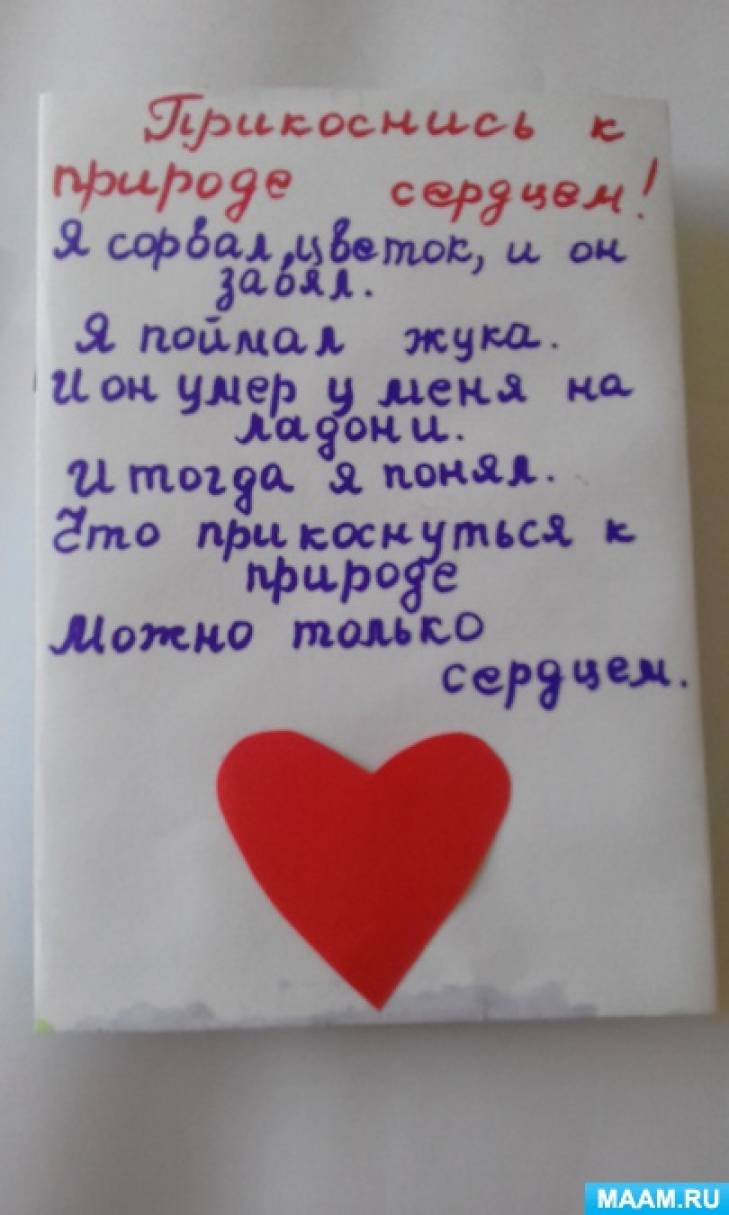 Прикоснись к
природе сердцем!
Я сорвал,цветок, и он
завял.
Я поймал жука.
И он умер у меня на
ладони.
И тогда я понял.
Что прикоснуться к
природе
Можно только
сердцем.
MAAM.RU